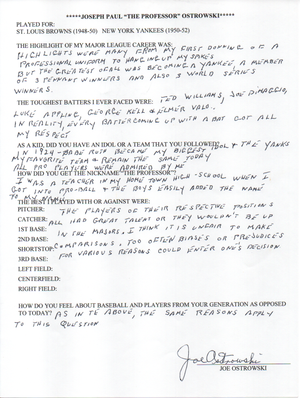 *****JOSEPH PAUL "THE PROFESSOR" OSTROWSKI*****
PLAYED FOR:
ST. LOUIS BROWNS (1948-50) NEW YORK YANKEES (1950-52)
THE HIGHLIGHT OF MY MAJOR LEAGUE CAREER WAS:
HIGHLIGHTS WERE MANY FROM MY FIRST DONNING OF A
PROFESSIONAL UNIFORM TO HANGING UP MY SPIKES
BUT THE GREATEST OF ALL WAS BECOMING A YANKEE, A MEMBER
OF 3 PENNANT WINNERS AND ALSO 3 WORLD SERIES
WINNERS.
THE TOUGHEST BATTERS I EVER FACED WERE: TED WILLIAMS, JOE DIMAGGIO,
LUKE APPLING, GEORGE KELL & ELMER VALO.
IN REALITY, EVERY BATTER COMING UP WITH A BAT GOT ALL
MY RESPECT
AS A KID, DID YOU HAVE AN IDOL OR A TEAM THAT YOU FOLLOWED
IN 1924 - BABE RUTH BECAME MY BIGGEST IDOL & THE YANKS
MY FAVORITE TEAM & REMAIN THE SAME TODAY
ALL PRO PLAYERS WERE ADMIRED BY ME
HOW DID YOU GET THE NICKNAME "THE PROFESSOR"?
I WAS A TEACHER IN MY HOME TOWN HIGH-SCHOOL WHEN I
GOT INTO PRO-BALL & THE BOYS EASILY ADDED THE NAME
TO MY NAME
THE BEST I PLAYED WITH OR AGAINST WERE:
PITCHER: THE PLAYERS OF THEIR RESPECTIVE POSITIONS
CATCHER: ALL HAD GREAT TALENT OR THEY WOULDN'T BE UP
1ST BASE: IN THE MAJORS, I THINK IT IS UNFAIR TO MAKE
2ND BASE:
SHORTSTOP: COMPARISONS, TOO OFTEN BIASES OR PREJUDICES
3RD BASE: FOR VARIOUS REASONS COULD ENTER ONE'S DECISION
LEFT FIELD:
CENTERFIELD:
RIGHT FIELD:
HOW DO YOU FEEL ABOUT BASEBALL AND PLAYERS FROM YOUR GENERATION AS OPPOSED
TO TODAY? AS IN THE ABOVE, THE SAME REASONS APPLY
TO THIS QUESTION
Joe Ostrowski
JOE OSTROWSKI